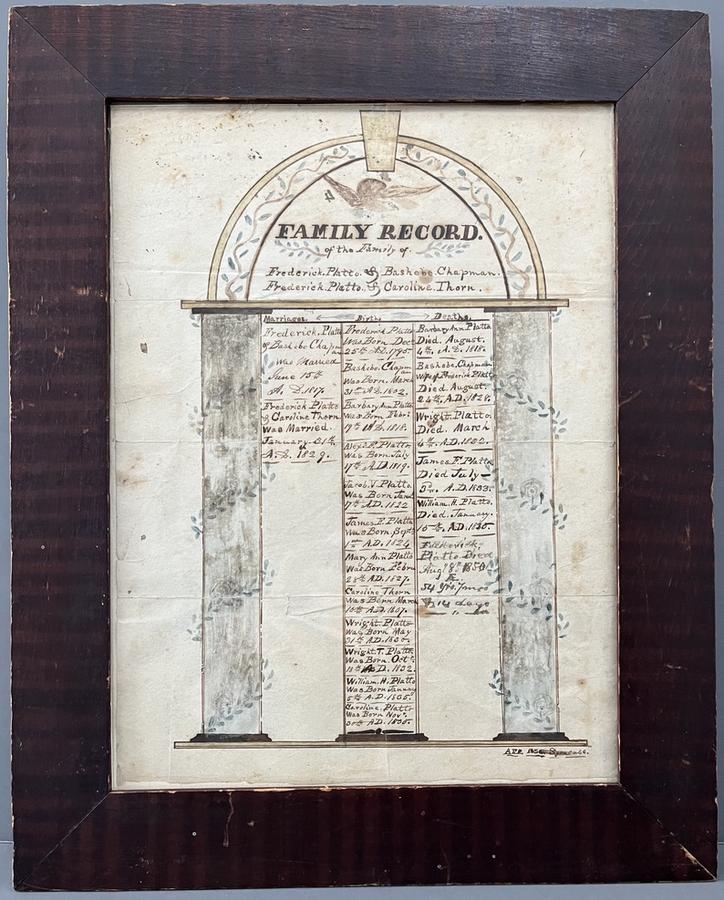 FAMILY RECORD.
of the Family of.
Frederick. Platto. & Bashebe. Chapman.
Frederick. Platto. & Caroline. Thorn.
Marriages
Frederick. Platt
& Bashebe Chapm
an
Was Married
June 15th
A. D. 1817.
Frederick Platto
& Caroline Thorn
Was Married.
January
A. D. 1829.
Births
Frederick Platto
Was Born Dec
25th A.D. 1795.
Bashebe. Chapm
an
Was Born. March
31st A.D. 1802.
Barbary Ann Platto
Was Born. Febri
17th A.D. 1818.
Platto
Was Born July
17th A.D. 1819.
Jacob. V. Platto
Was Born
7th A.D. 1822
James F. Platto
Was Born. Sept
1st A.D. 1824
Mary Ann Platto
Was Born Febru
28th A.D. 1827.
Caroline Thorn
Was Born March
10th A.D. 1807.
Wright. Platto
Was Born May
31st A.D. 1830.
Wright. T. Platto
Was Born. Oct
A.D. 1832.
William. H. Platto
Was Born January
5th A.D. 1835.
Caroline. Platto
Was Born Nov
30th A.D. 1836.
Deaths.
Barbary Ann Platto
Died. August.
4th. A.D. 1818.
Bashebe. Chapman
Wife of Frederick Platt
Died August.
24th A.D. 1828.
Wright. Platto.
Died March
4th. A.D. 1832.
James F. Platto
Died July
A.D. 1833.
William. H. Platto
Died. January.
A.D.
Frederick.
Platto Died
Aug 8th 1850
54 yrs. 7 mos
& 14 days